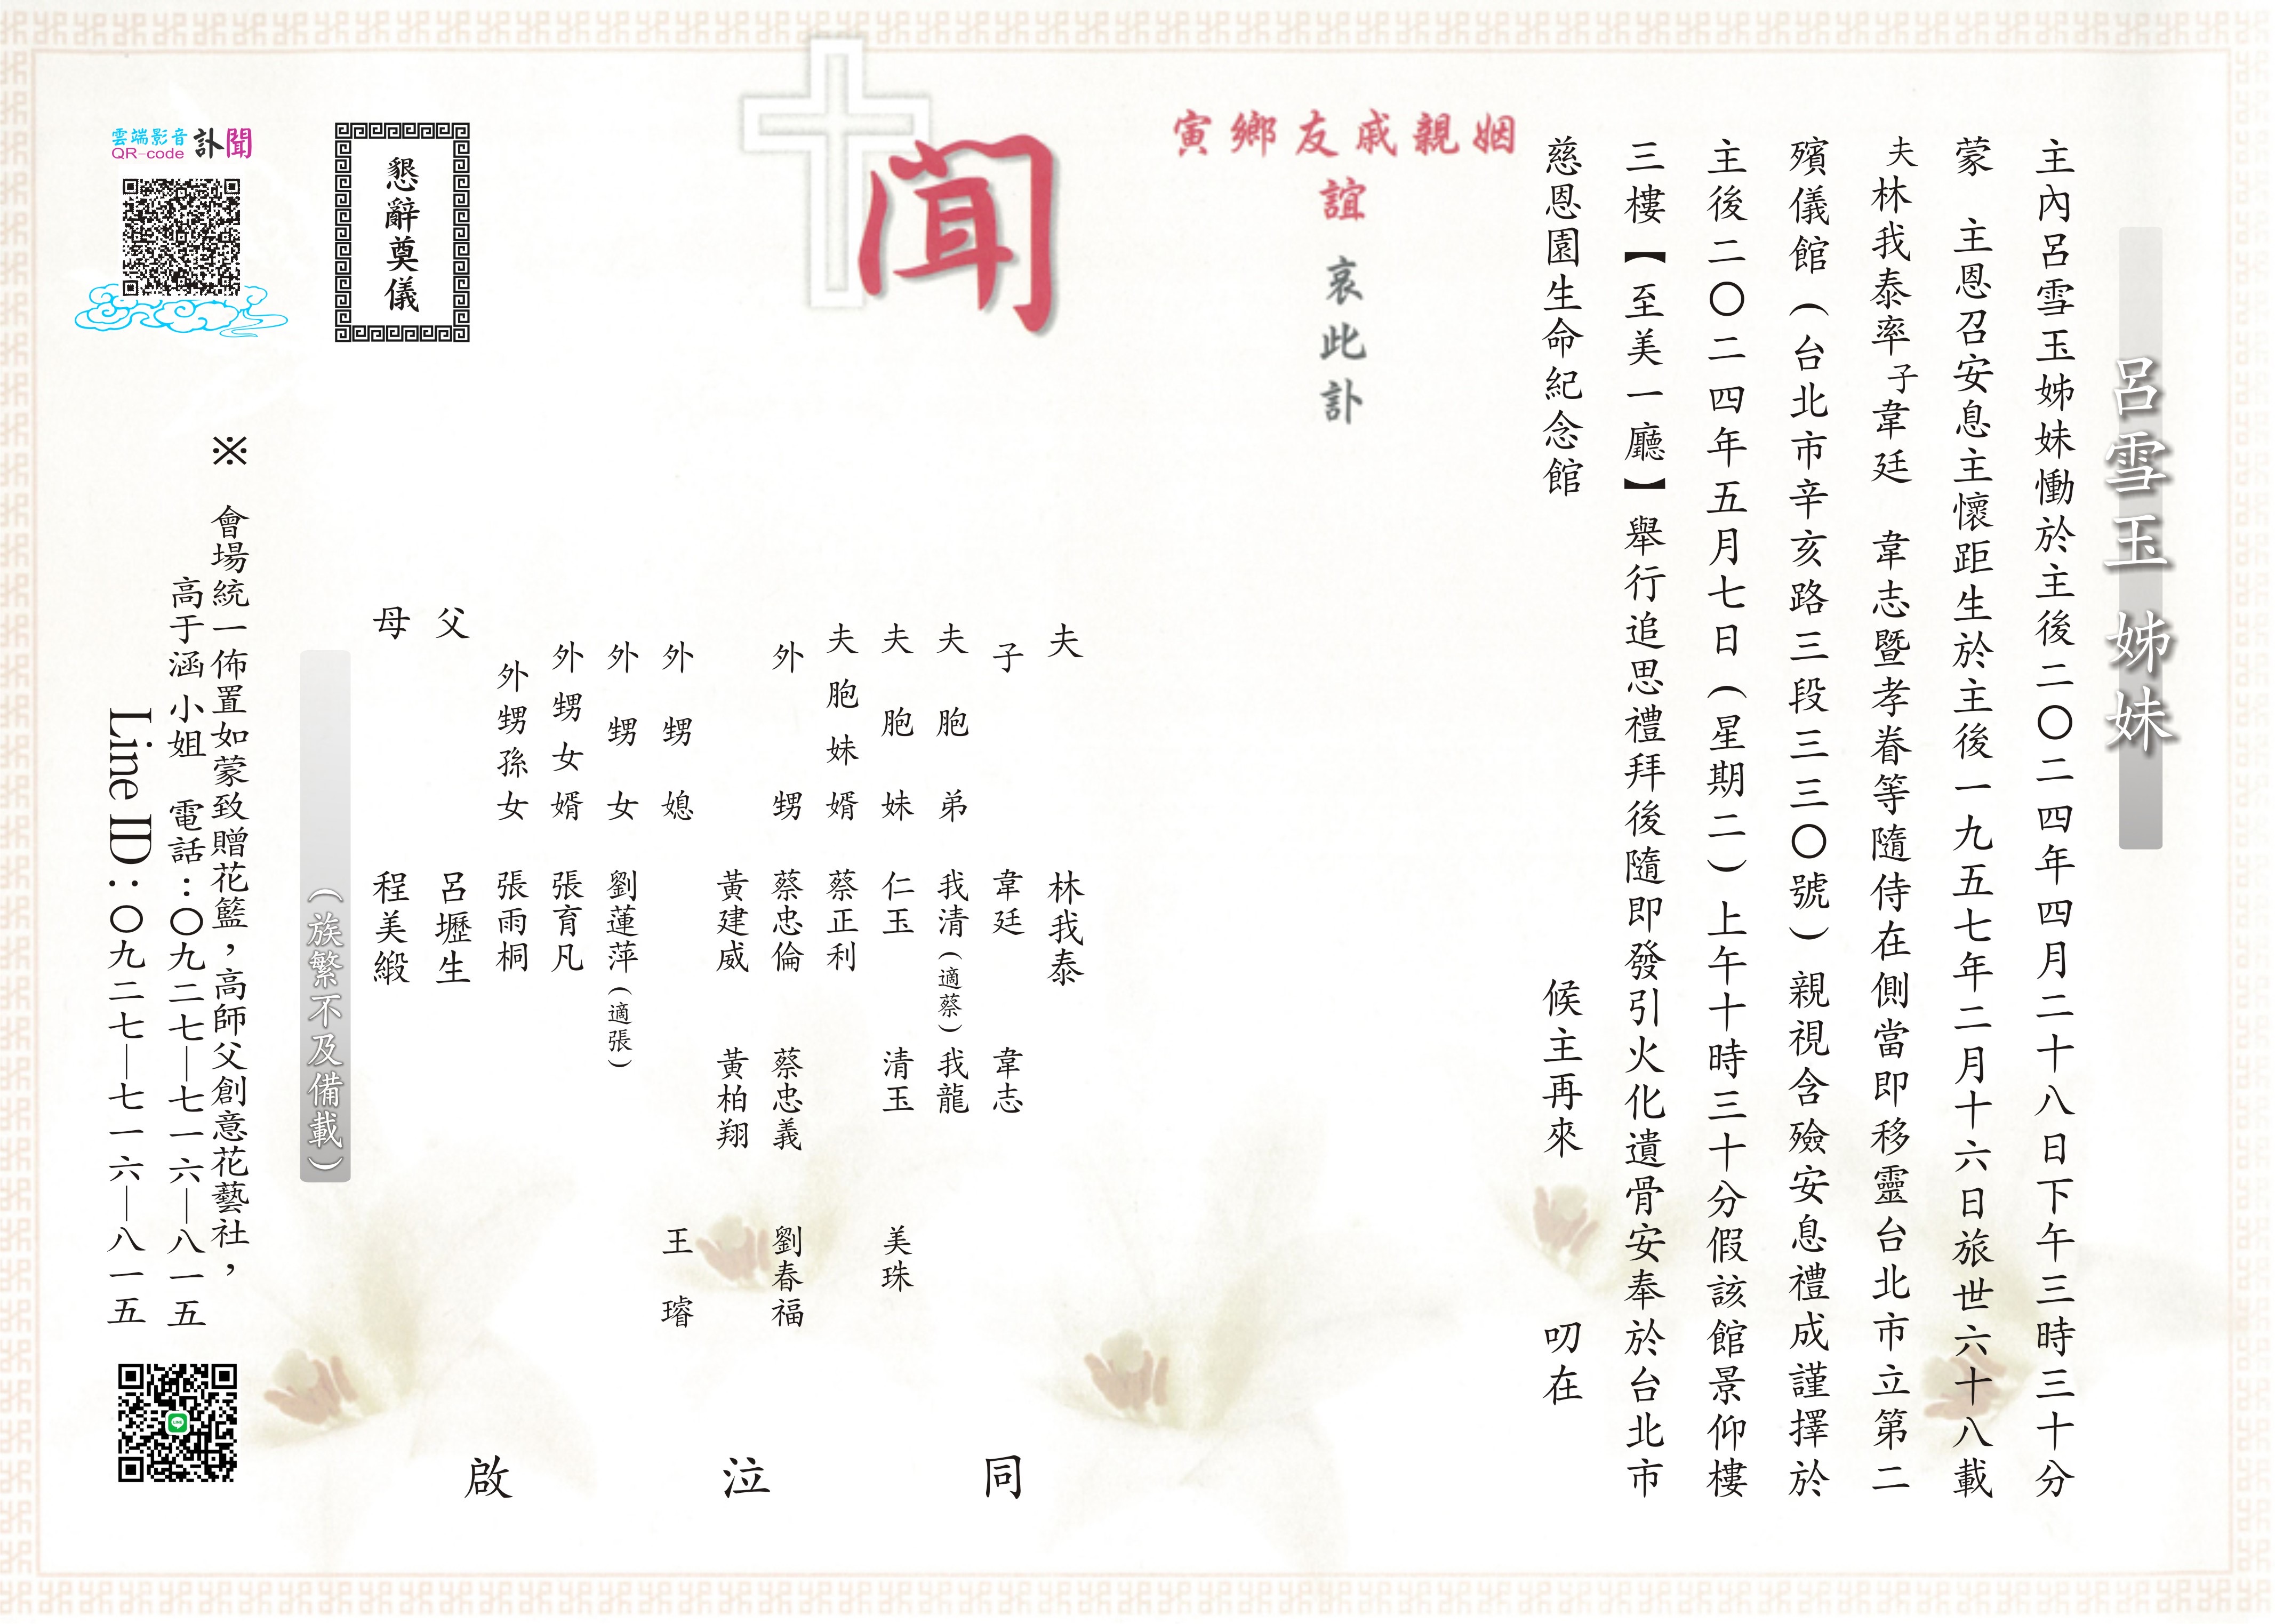 呂雪玉 姊妹
主內呂雪玉姊妹慟於主後二〇二四年四月二十八日下午三時三十分
蒙　主恩召安息主懷距生於主後一九五七年二月十六日旅世六十八載
夫林我泰率子韋廷　韋志暨孝眷等隨侍在側當即移靈台北市立第二
殯儀館（台北市辛亥路三段三三〇號）親視含殮安息禮成謹擇於
主後二〇二四年五月七日（星期二）上午十時三十分假該館景仰樓
三樓【至美一廳】舉行追思禮拜後隨即發引火化遺骨安奉於台北市
慈恩園生命紀念館　候主再來　叨在
姻親戚友鄉寅
誼
哀此訃
聞
夫　林我泰
子　韋廷　韋志
夫胞弟　我清（適蔡）我龍
夫胞妹　仁玉　清玉　美珠
夫胞妹婿　蔡正利
外甥　蔡忠倫　蔡忠義　劉春福
黃建威　黃柏翔
外甥媳　王璿
外甥女　劉蓮萍（適張）
外甥女婿　張育凡
外甥孫女　張雨桐
父　呂壢生
母　程美緞
同泣啟
（族繁不及備載）
懇辭奠儀
雲端影音
QR-code
訃聞
※　會場統一佈置如蒙致贈花籃，高師父創意花藝社，
高于涵小姐　電話：〇九二七—七一六—八一五
Line ID：〇九二七—七一六—八一五